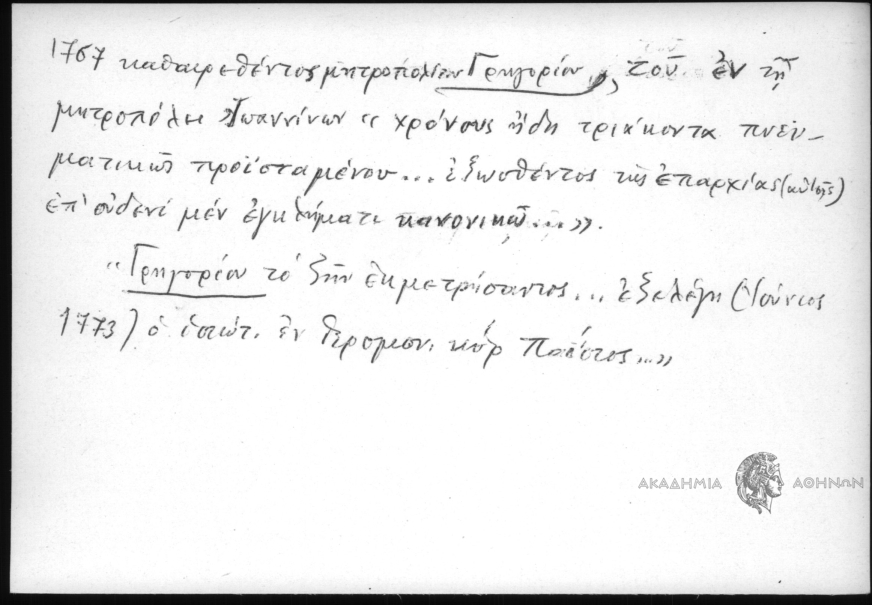 1767 καθαιρεθέντος μητροπολίτου Γρηγορίου, τοῦ ἐν τῇ
μητροπόλει Ἰωαννίνων "χρόνους ἤδη τριάκοντα πνευ-
ματικῶς προϊσταμένου... ἐξωσθέντος τῆς ἐπαρχίας (καὶ τῆς)
ἐπ' οὐδενί μέν ἐγκλήματι κανονικῷ...».
"Γρηγορίου τό ζῆν ἐκμετρήσαντος... ἐξελέγη (Ἰούνιος
1773) ὁ ἐν ἱερομον. κύρ Παΐσιος..."
ΑΚΑΔΗΜΙΑ ΑΘΗΝΩΝ